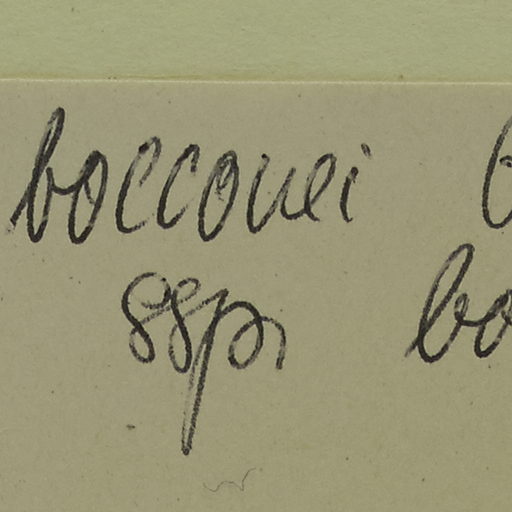 bocconei
ssp.